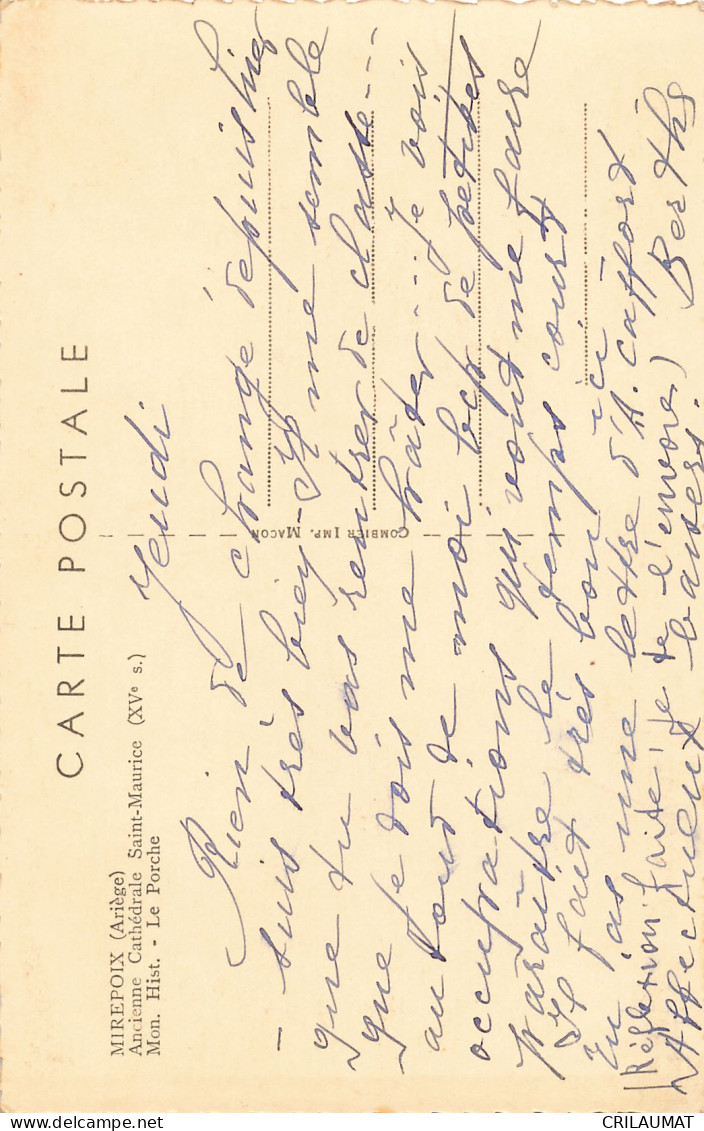 CARTE POSTALE
MIREPOIX (Ariège)
Ancienne Cathédrale Saint-Maurice (XVe s.)
Mon. Hist. - Le Porche
COMBIER IMP. MACON
Jeudi
Rien de changé depuis hier
- suis très bien - Il me semble
que tu vas rentrer de classe...
que je dois me hâter... Je vois
autour de moi bcp de petites
occupations qui vont me faire
paraître le temps court
Il fait très bon ici
Tu as une lettre d'A. Caffort
(Réflexion faite, je te l'envoie)
Affectueux baisers. Berthe
CRILAUMAT